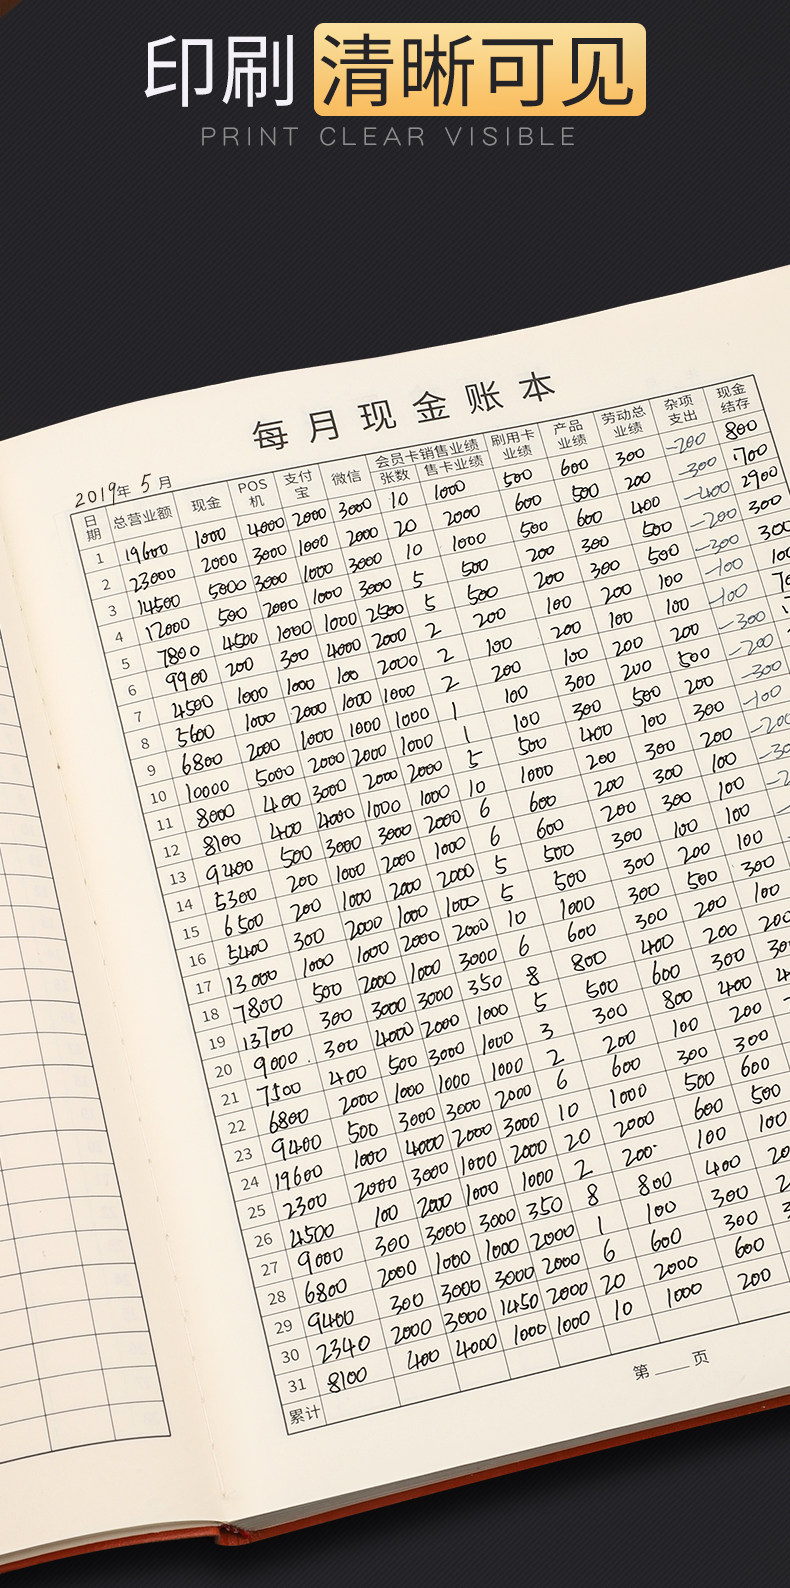 印刷 清晰可见
PRINT CLEAR VISIBLE
每月现金账本
2019年 5月
日期 总营业额 现金 POS机 支付宝 微信 会员卡销售业绩 张数 售卡业绩 刷用卡业绩 产品业绩 劳动总业绩 杂项支出 现金结存
1 19600 1000 4000 2000 3000 10 1000 500 600 300 -200 800
2 23000 2000 3000 1000 2000 20 2000 600 500 200 -300 700
3 14500 5000 3000 1000 3000 10 1000 500 600 400 -400 2900
4 12000 500 2000 1000 3000 5 500 200 300 500 -200 300
5 7800 4500 1000 1000 2500 5 500 200 300 500 -300
6 9900 200 300 4000 2000 2 200 100 200 100 -100
7 4500 1000 1000 100 2000 2 100 200 100 100 -100
8 5600 1000 2000 1000 1000 2 200 100 200 200 -300
9 6800 2000 1000 1000 1000 1 100 300 200 500 -200
10 10000 5000 2000 2000 1000 1 100 300 500 200 -300
11 8000 400 3000 2000 2000 5 500 400 100 300 -100
12 8100 400 4000 1000 1000 10 1000 200 300 200
13 9400 500 3000 3000 2000 6 600 200 300 100
14 5300 200 1000 2000 1000 6 600 200 300 100
15 6500 200 1000 2000 2000 5 500 300 100 100
16 5400 300 2000 1000 1000 5 500 300 200 100
17 13000 1000 1000 2000 2000 10 1000 300 500 300
18 7800 500 2000 1000 3000 6 600 300 200 100
19 13700 300 3000 3000 350 8 800 400 200 200
20 9000 300 4000 2000 1000 5 500 600 300
21 7500 400 500 3000 1000 3 300 800 400
22 6800 2000 1000 1000 1000 2 200 100 200
23 9400 500 3000 3000 2000 6 600 300 300
24 19600 1000 4000 2000 3000 10 1000 500 600
25 2300 2000 3000 1000 2000 20 2000 600 500
26 4500 100 2000 1000 1000 2 200 100 100
27 9000 300 3000 3000 350 8 800 400
28 6800 2000 1000 1000 2000 1 100 300
29 9400 300 3000 3000 2000 6 600 300
30 2340 2000 3000 1450 2000 20 2000 600
31 8100 400 4000 1000 1000 10 1000 200
累计
第 页